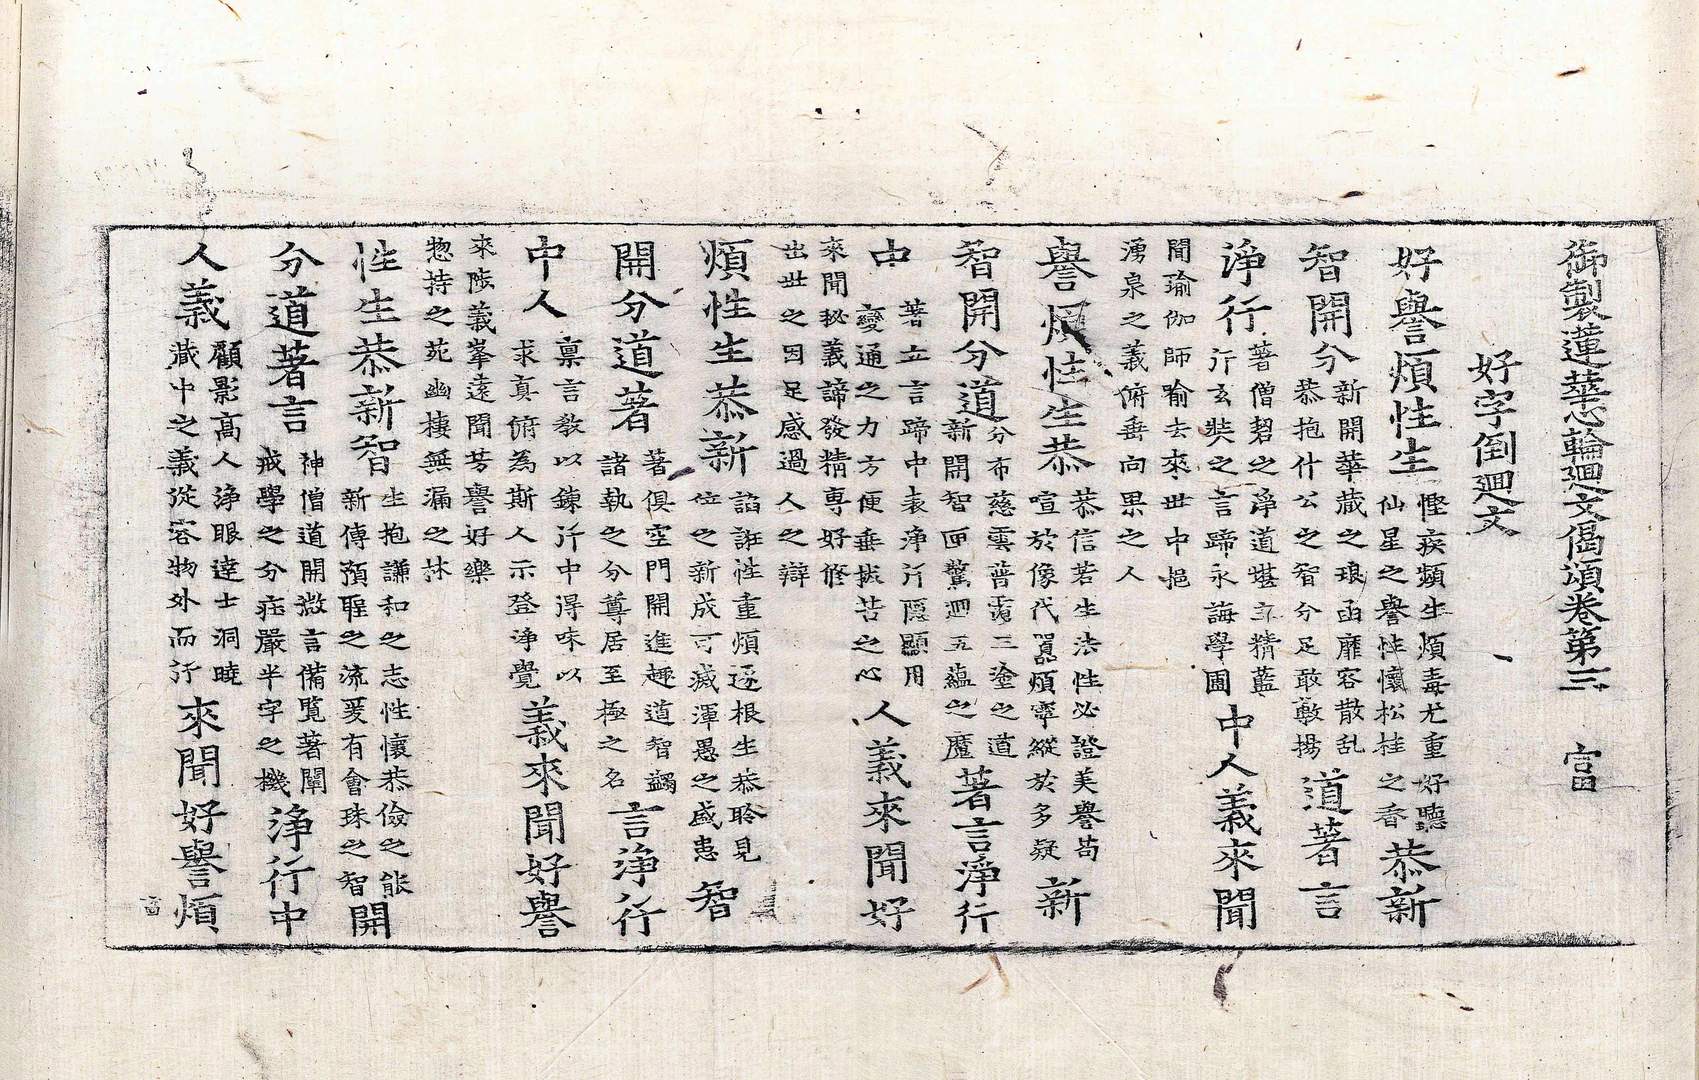 御製蓮華心輪迴文偈頌卷第三 富
好字倒迴文
好譽煩性生 慳疾類生煩毒尤重好聽 仙星之譽性懷松桂之香 恭新
智開分 新開華藏之琅函靡容散乱 恭抱什公之智分足敢敷揚 道著言
淨行 著僧䂮之淨道堪立精藍 行玄奘之言蹄永誨學圃 中人義來聞
聞瑜伽師喻去來世中挹
湧泉之義俯垂向果之人
譽煩性生恭 恭信若生法性必證美譽苟 喧於像代囂煩寧縱於多疑 新
智開分道 分布慈雲普霔三塗之道 新開智匣驚迴五蘊之魔 著言淨行
中 著立言蹄中表淨行隱顯用 變通之力方便垂拔苦之心 人義來聞好
來聞秘義諦發精專好修
出世之因足感過人之辯
煩性生恭新 諂誑性重煩逐根生恭聆見 位之新成可滅渾愚之盛恚 智
開分道著 著俱空門開進趣道智蠲 諸執之分尊居至極之名 言淨行
中人 稟言教以鍊行中得味以 求真俯為斯人示登淨覺 義來聞好譽
來陟義峯遠聞芳譽好樂
惣持之苑幽棲無漏之林
性生恭新智 生抱謙和之志性懷恭儉之能 新傳預聖之流爰有會珠之智 開
分道著言 神僧道開微言備覽著闡 戒學之分莊嚴半字之機 淨行中
人義 顧影高人淨眼達士洞曉 藏中之義從容物外而行 來聞好譽煩
富